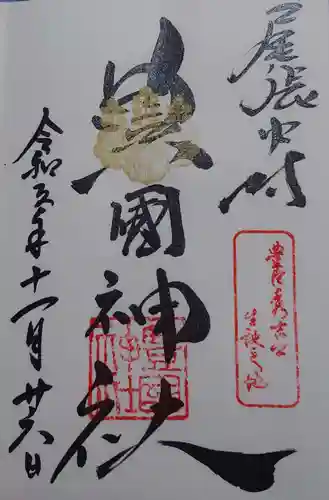 尾張中村
豊國神社
豊臣秀吉公
生誕之地
令和五年十一月廿六日